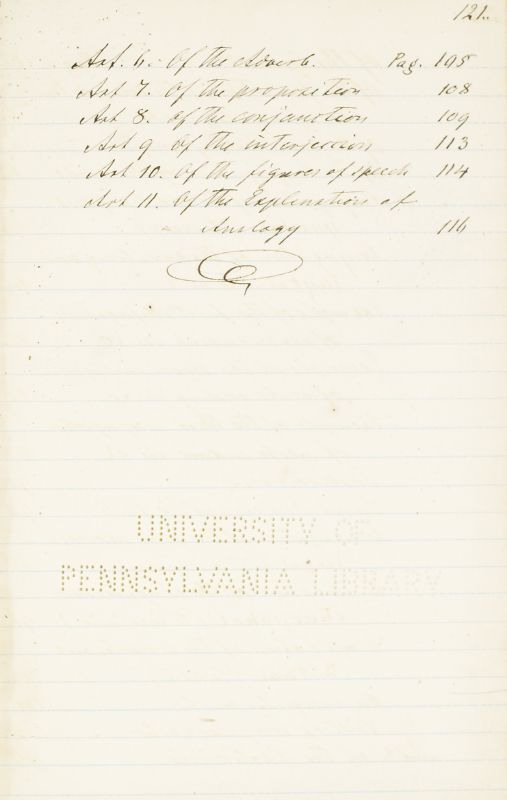 121.
Art. 6. Of the Adverb. Pag. 105
Art 7. Of the preposition 108
Art 8. Of the conjunction 109
Art 9 Of the interjeccion 113
Art 10. Of the figures of speech 114
Art 11. Of the Explenation of
Analogy 116
UNIVERSITY OF
PENNSYLVANIA LIBRARY